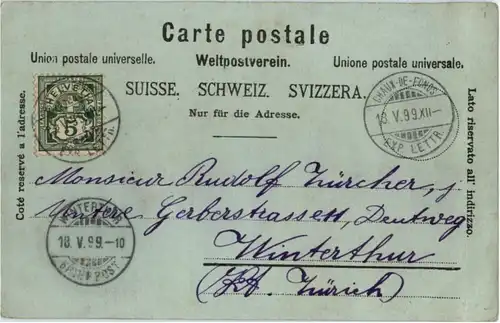 Carte postale
Union postale universelle. Weltpostverein. Unione postale universale.
SUISSE. SCHWEIZ. SVIZZERA.
Nur für die Adresse.
Coté reservé a l'adresse.
Lato riservato all' indirizzo.
HELVETIA
5
EXP. LETTR.
CHAUX-DE-FONDS
18.V.99.XII—
EXP. LETTR.
Monsieur Rudolf Zürcher, j.
Untere Gerberstrasse, Deutweg
Winterthur
(Kt. Zürich)
WINTERTHUR
18.V.99.–10
BRIEFPOST